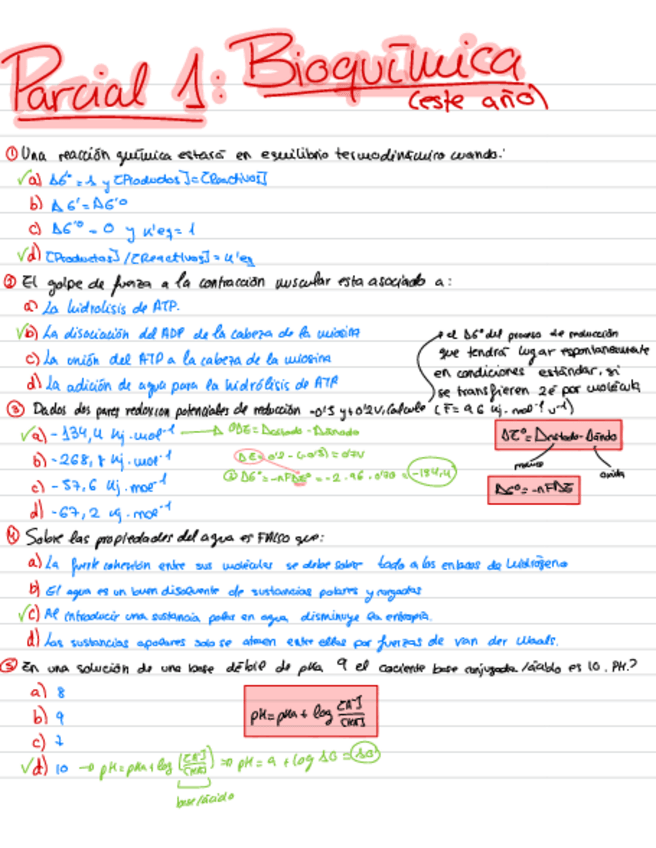 Parcial 1: Bioquímica
(este año)
① Una reacción química estará en equilibrio termodinámico cuando:
√a) ΔG'º = 1 y [Productos]=[Reactivos]
b) ΔG'=ΔG'º
c) ΔG'º = 0 y K'eq = 1
√d) [Productos]/[Reactivos] = K'eq
② El golpe de fuerza a la contracción muscular esta asociado a:
a) La hidrolisis de ATP.
√b) La disociación del ADP de la cabeza de la miosina
c) La unión del ATP a la cabeza de la miosina
d) la adición de agua para la hidrólisis de ATP
→ el ΔGº del proceso de reducción
que tendrá lugar espontaneamente
en condiciones estándar, si
se transfieren 2e por molécula
③ Dados dos pares redox con potenciales de reducción -0'5 y +0'2V, Calcule (F= 96 kj·mol⁻¹ V⁻¹)
√a) - 134,4 kj·mol⁻¹ →
b) - 268,8 kj·mol⁻¹
c) - 57,6 kj·mol⁻¹
d) - 67,2 kj·mol⁻¹
ΔE = 0'2 - (-0'5) = 0'7V
② ΔGº = -nFΔEº = -2 · 96 · 0'70 = -134,4
ΔGº = -nFΔE
④ Sobre las propiedades del agua es FALSO que:
a) La fuerte cohesión entre sus moléculas se debe sobre todo a los enlaces de hidrógeno
b) El agua es un buen disolvente de sustancias polares y cargadas
√c) Al introducir una sustancia polar en agua, disminuye la entropía.
d) Las sustancias apolares solo se atraen entre ellas por fuerzas de van der Waals.
⑤ En una solución de una base débil de pKa 9 el cociente base conjugada/ácido es 10. PH?
a) 8
b) 9
c) 7
√d) 10 → pH = pKa + log ([A⁻]/[HA]) ⇒ pH = 9 + log 10 = 10
base/ácido
pH = pKa + log [A⁻]/[HA]